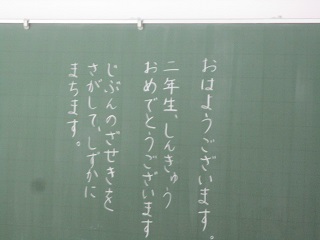 おはようございます。
二年生、しんきゅう
おめでとうございます
じぶんのざせきを
さがして、しずかに
まちます。